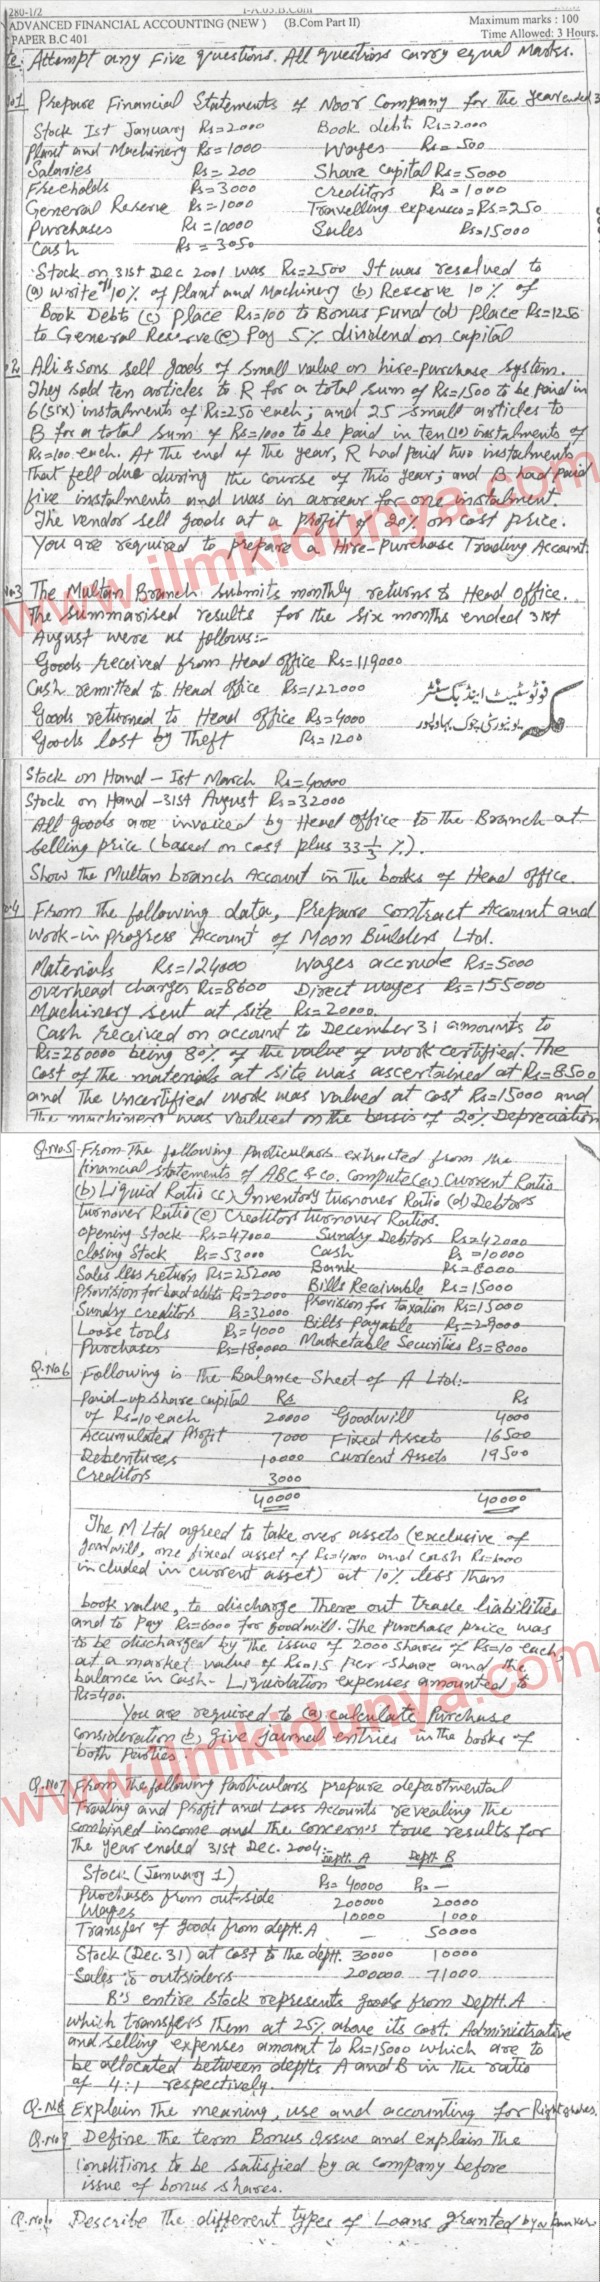 280-1/2
ADVANCED FINANCIAL ACCOUNTING (NEW) (B.Com Part II) Maximum marks : 100
PAPER B.C 401 Time Allowed: 3 Hours.
Attempt any Five Questions. All questions carry equal Marks.
Prepare Financial Statements of Noor Company for the Year ended 3
Stock Ist January Rs=2000 Book debts Rs=2000
Plant and Machinery Rs=1000 Wages Rs=500
Salaries Rs=200 Share capital Rs=5000
Freeholds Rs=3000 Creditors Rs=1000
General Reserve Rs=1000 Travelling expenses=Rs=250
Purchases Rs=10000 Sales Rs=15000
Cash Rs=3050
Stock on 31st Dec 2001 was Rs=2500 It was resolved to
(a) write 10% of Plant and Machinery (b) Reserve 10% of
Book Debts (c) Place Rs=100 to Bonus Fund (d) Place Rs=1250
to General Reserve (e) Pay 5% dividend on capital
2 Ali & Sons sell goods of small value on hire-purchase system.
They sold ten articles to R for a total sum of Rs=1500 to be paid in
6(six) instalments of Rs=250 each; and 25 small articles to
B for a total sum of Rs=1000 to be paid in ten(10) instalments of
Rs=100 each. At the end of the year, R had paid two instalments
that fell due during the course of this year; and B had paid
five instalments and was in arrear for one instalment.
The vendor sell goods at a profit of 20% on cost price.
You are required to prepare a Hire-Purchase Trading Account.
No3 The Multan Branch submits monthly returns to Head office.
The summarised results for the six months ended 31st
August were as follows:-
Goods received from Head office Rs=119000
Cash remitted to Head office Rs=122000
Goods returned to Head office Rs=4000
Goods lost by Theft Rs=1200
فوٹو سٹیٹ اینڈ بک سنٹر
یونیورسٹی چوک بہاولپور
Stock on Hand - Ist March Rs=40000
Stock on Hand - 31st August Rs=32000
All goods are invoiced by Head office to the Branch at
Selling price (based on cost plus 33 1/3 %).
Show the Multan branch Account in the books of Head office.
4 From the following data, Prepare contract Account and
work-in progress Account of Moon Builders Ltd.
Materials Rs=124000 Wages accrude Rs=5000
overhead charges Rs=8600 Direct wages Rs=155000
Machinery sent at site Rs=20000.
Cash received on account to December 31 amounts to
Rs=260000 being 80% of the value of work certified. The
cost of the materials at site was ascertained at Rs=8500
and the uncertified work was valued at cost Rs=15000 and
The machinery was valued on the basis of 20% Depreciation
Q.No5 From the following Particulars extracted from the
financial statements of ABC & co. Compute (a) Current Ratio
(b) Liquid Ratio (c) Inventory turnover Ratio (d) Debtors
turnover Ratio (e) Creditors turnover Ratios.
opening Stock Rs=47000 Sundry Debtors Rs=42000
closing Stock Rs=53000 Cash Rs=10000
Sales less return Rs=252000 Bank Rs=8000
Provision for bad debts Rs=2000 Bills Receivable Rs=15000
Sundry creditors Rs=32000 Provision for taxation Rs=15000
Loose tools Rs=4000 Bills Payable Rs=29000
Purchases Rs=180000 Marketable Securities Rs=8000
Q.No6 Following is the Balance Sheet of A Ltd:-
Paid-up share capital Rs Rs
of Rs-10 each 20000 Goodwill 4000
Accumulated Profit 7000 Fixed Assets 16500
Debentures 10000 Current Assets 19500
Creditors 3000
40000 40000
The M Ltd agreed to take over assets (exclusive of
goodwill, one fixed asset of Rs=4000 and cash Rs=1000
included in current asset) at 10% less than
book value, to discharge There out trade liabilities
and to Pay Rs=6000 for goodwill. The Purchase price was
to be discharged by the issue of 2000 shares of Rs=10 each,
at a market value of Rs=15 Per share and the
balance in cash- Liquidation expenses amounted to
Rs=400.
You are required to (a) calculate Purchase
consideration (b) give journal entries in the books of
both Parties.
Q.No7 From the following Particulars prepare departmental
Trading and Profit and Loss Accounts revealing the
combined income and the concern's true results for
The Year ended 31st Dec. 2004:-
Deptt. A Deptt. B
Stock (January 1) Rs= 40000 Rs= -
Purchases from out-side 200000 20000
Wages 10000 1000
Transfer of goods from deptt. A - 50000
Stock (Dec. 31) at cost to the deptt. 30000 10000
Sales to outsiders 200000 71000
B's entire stock represents goods from Deptt. A
which transfers them at 25% above its cost. Administrative
and selling expenses amount to Rs=15000 which are to
be allocated between deptts A and B in the ratio
of 4:1 respectively.
Q.No8 Explain the meaning, use and accounting for Right shares.
Q.No9 Define the term Bonus Issue and explain the
Conditions to be satisfied by a company before
issue of bonus shares.
Q.No10 Describe the different types of Loans granted by a banker
www.ilmkidunya.com
www.ilmkidunya.com